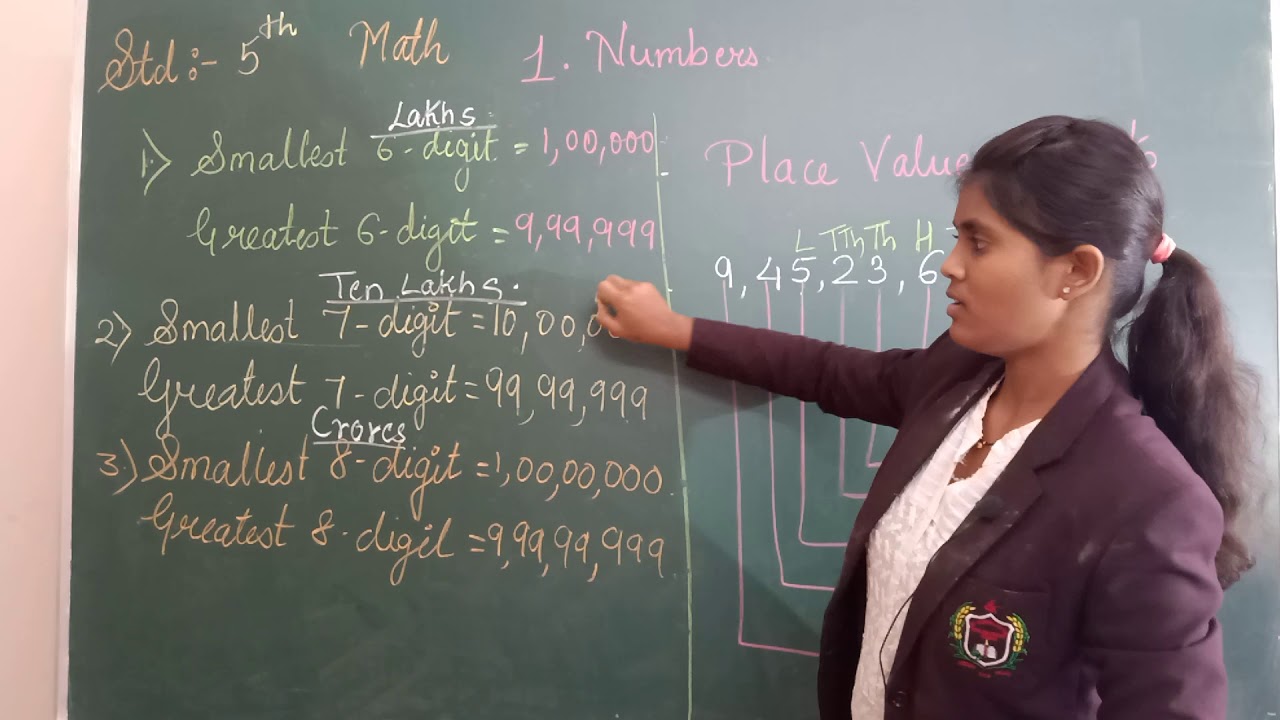 Std:- 5th Math 1. Numbers
Lakhs.
1) Smallest 6-digit = 1,00,000
Greatest 6-digit = 9,99,999
Ten Lakhs.
2) Smallest 7-digit = 10,00,0
Greatest 7-digit = 99,99,999
Crores
3.) Smallest 8-digit = 1,00,00,000.
Greatest 8-digit = 9,99,99,999
Place Value
L TTh Th H
9,45,23,6